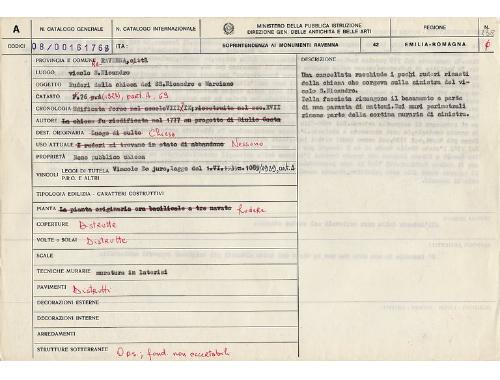 A
N. CATALOGO GENERALE
N. CATALOGO INTERNAZIONALE
MINISTERO DELLA PUBBLICA ISTRUZIONE
DIREZIONE GEN. DELLE ANTICHITÀ E BELLE ARTI
REGIONE
N.
CODICI
08/00161768
ITA:
SOPRINTENDENZA AI MONUMENTI RAVENNA
42
EMILIA-ROMAGNA
PROVINCIA E COMUNE RAVENNA, città
LUOGO vicolo S.Nicandro
OGGETTO Ruderi della chiesa dei SS.Nicandro e Marciano
CATASTO F.76
CRONOLOGIA Edificata forse nel secolo VIII/IX, ricostruita nel sec. XVII
AUTORE La chiesa fu riedificata nel 1777 su progetto di Giulio
DEST. ORIGINARIA Luogo di culto Chiesa
USO ATTUALE I ruderi si trovano in stato di abbandono Nessuno
PROPRIETÀ Bene pubblico chiesa
VINCOLI LEGGI DI TUTELA Vincolo De jure, legge del 1089/1939, art. 4
P.R.G. E ALTRI
TIPOLOGIA EDILIZIA - CARATTERI COSTRUTTIVI
PIANTA La pianta originaria era basilicale a tre navate Rudere
COPERTURE Distrutte
VOLTE o SOLAI Distrutte
SCALE
TECNICHE MURARIE muratura in laterizi
PAVIMENTI Distrutti
DECORAZIONI ESTERNE
DECORAZIONI INTERNE
ARREDAMENTI
STRUTTURE SOTTERRANEE fond. non accertabili
DESCRIZIONE
Una cancellata racchiude i pochi ruderi rimasti
della chiesa che sorgeva sulla sinistra del vi
colo S.Nicandro.
Della facciata rimangono il basamento e parte di
una parasta di mattoni. Dei muri perimetrali
rimane parte della cortina muraria di sinistra.